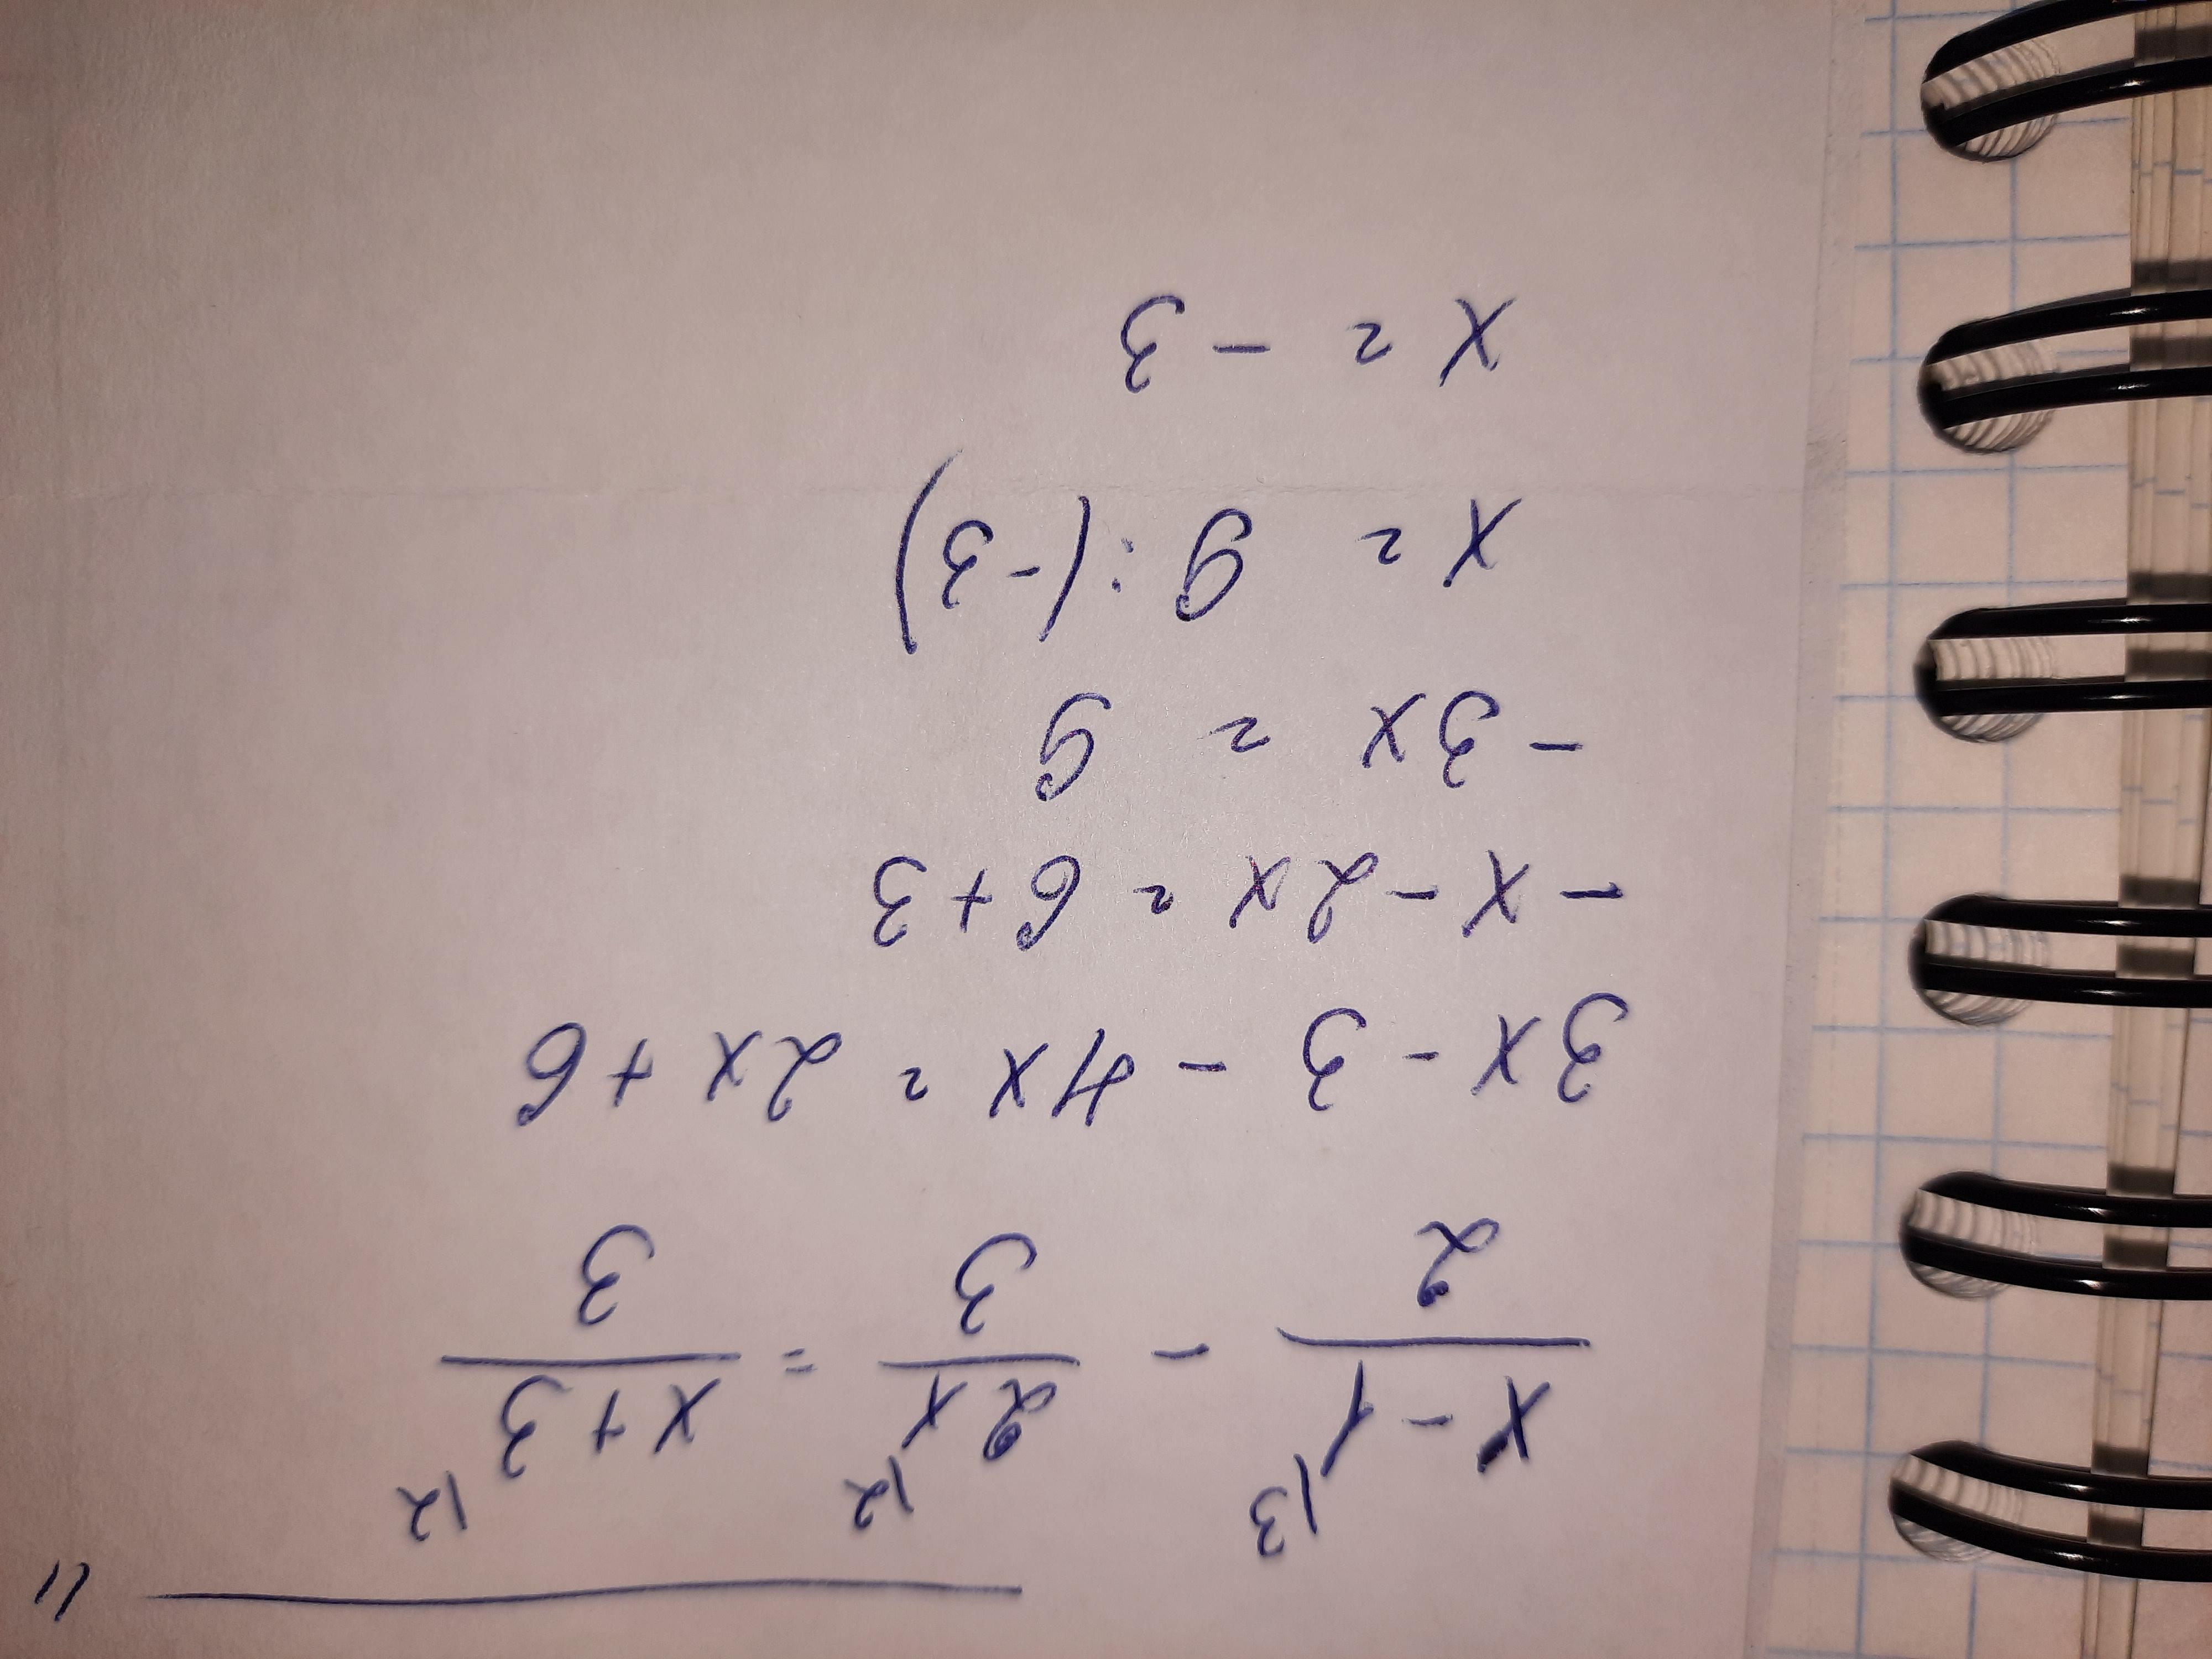 x - 1 |3 / 2 - 2x |2 / 3 = x + 3 |2 / 3
3x - 3 - 4x = 2x + 6
- x - 2x = 6 + 3
- 3x = 9
x = 9 : (-3)
x = - 3